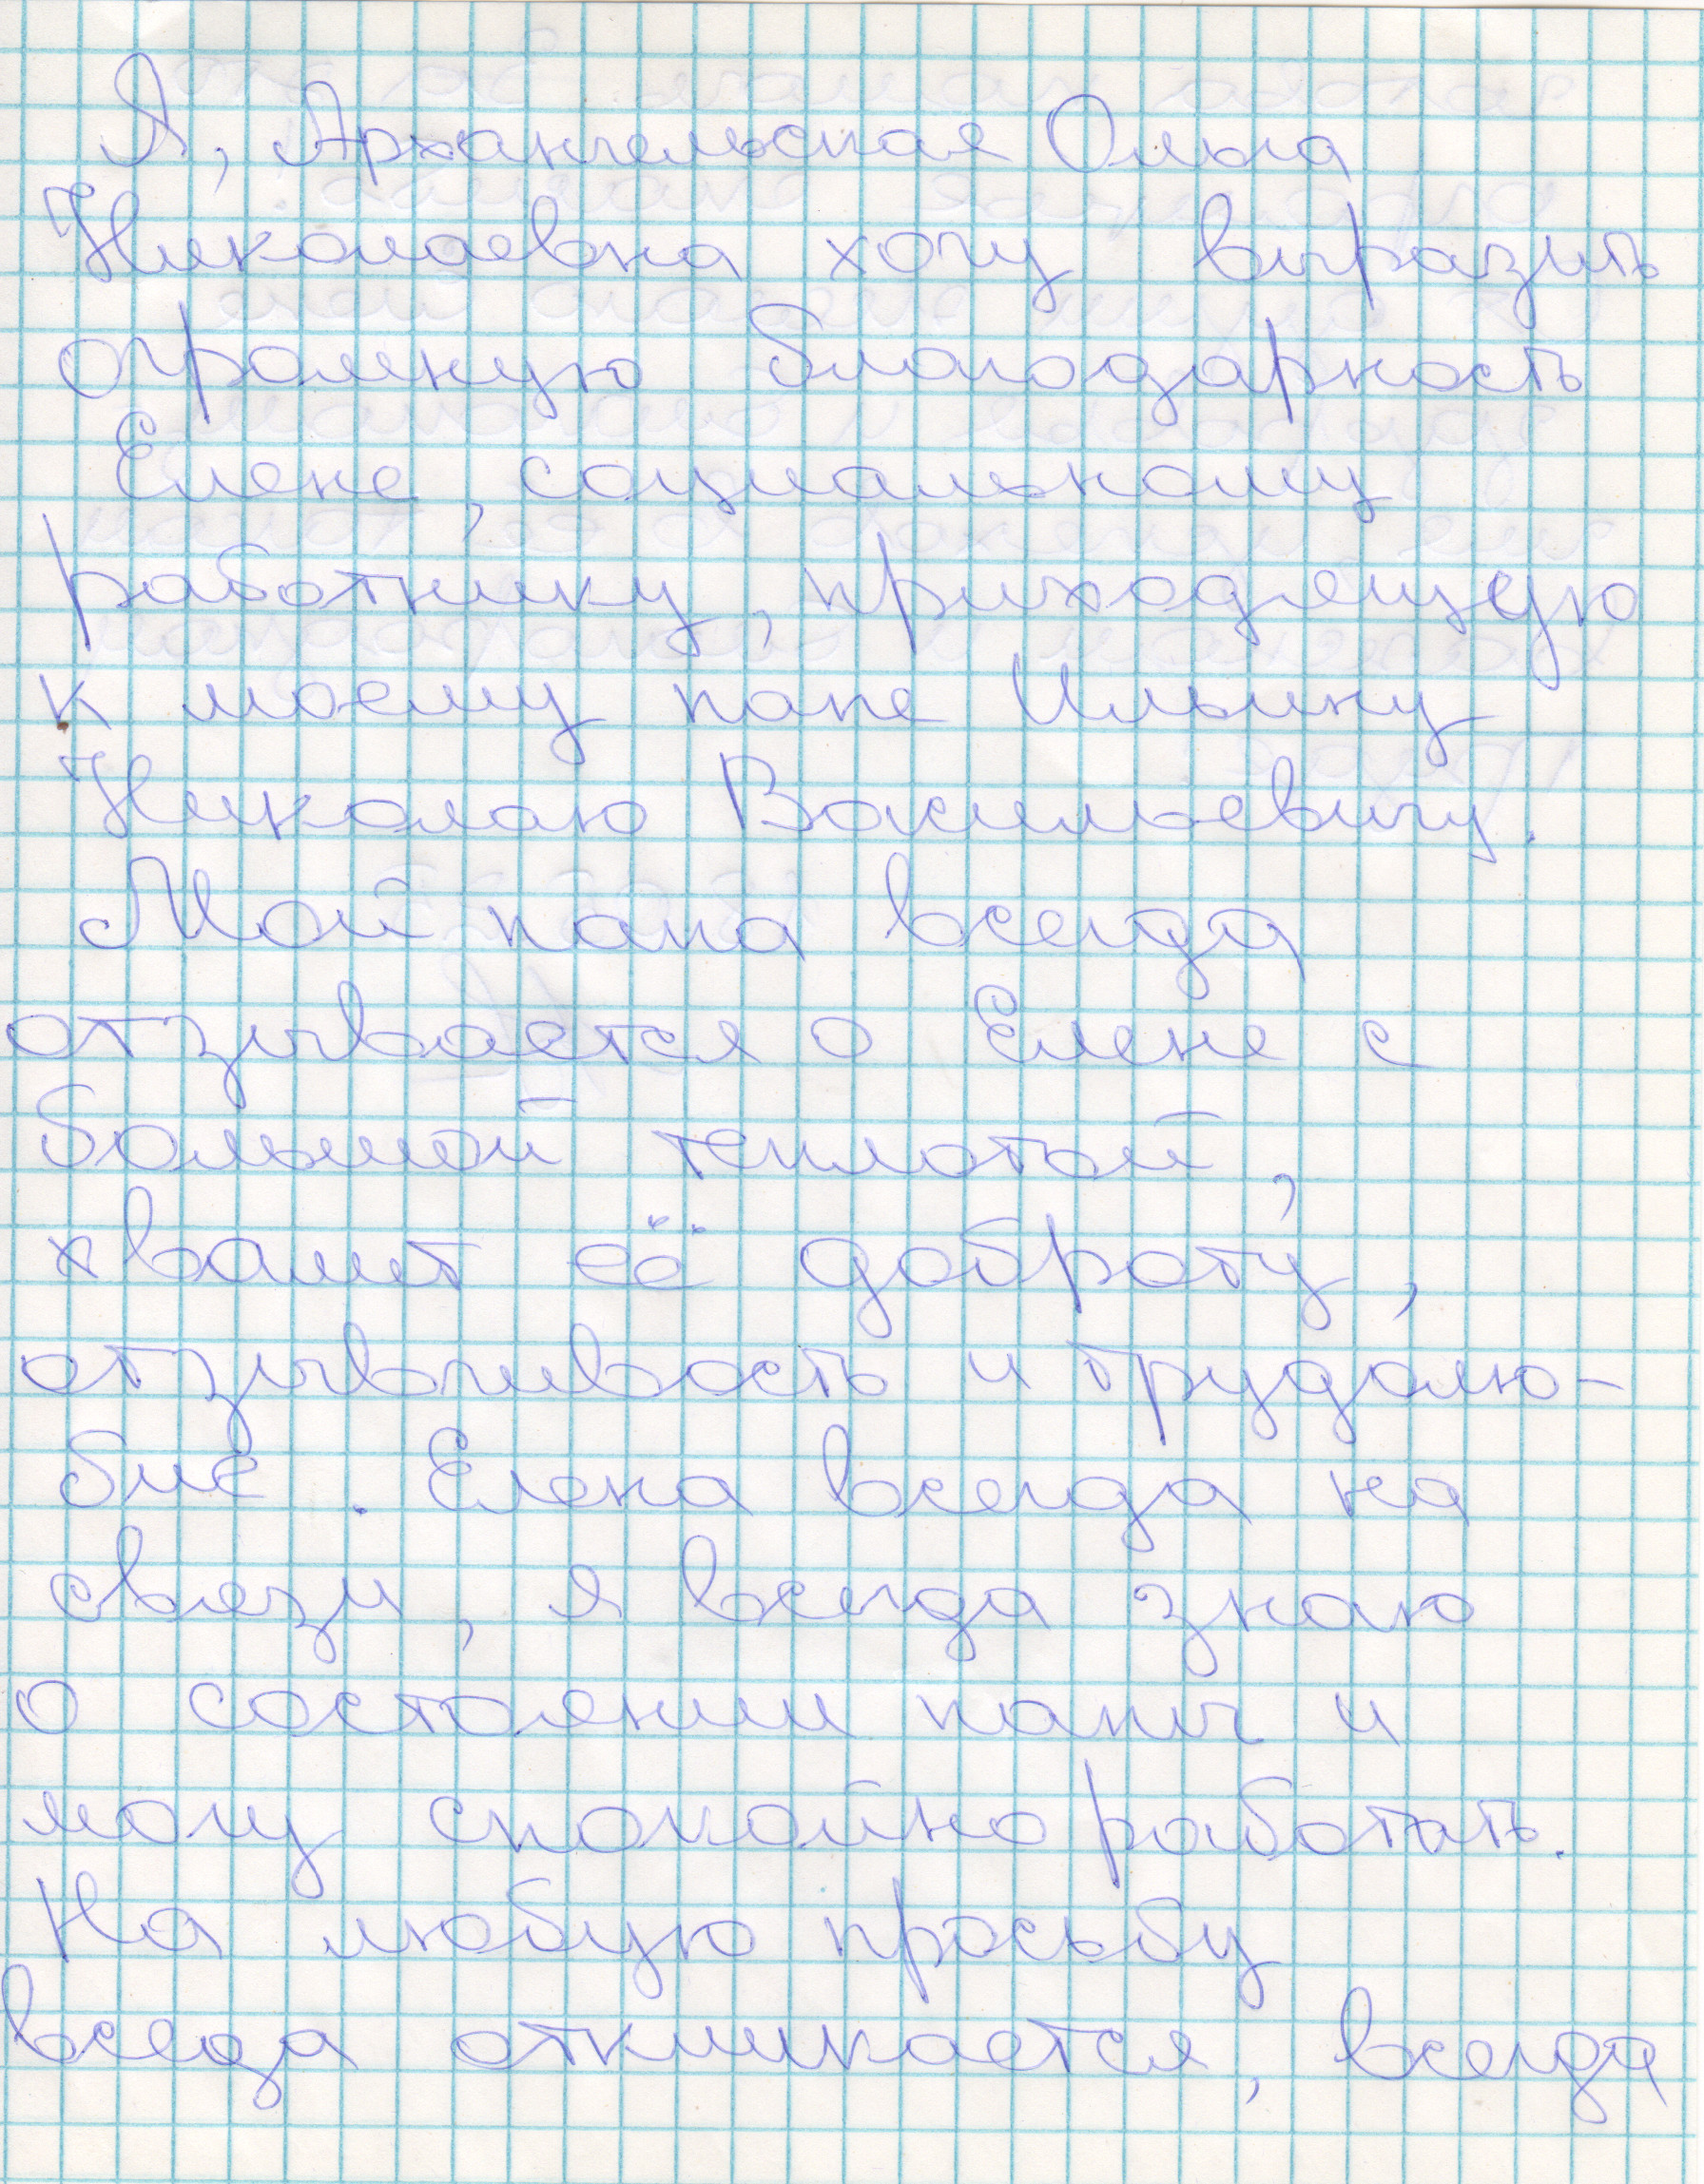 Я, Архангельская Ольга
Николаевна хочу выразить
огромную благодарность
Елене, социальному
работнику, приходящую
к моему папе Ильину
Николаю Васильевичу.
Мой папа всегда
отзывается о Елене с
большой теплотой,
хвалит её доброту,
отзывчивость и трудолю-
бие. Елена всегда на
связи, я всегда знаю
о состоянии папы и
могу спокойно работать.
На любую просьбу
всегда откликается, всегда